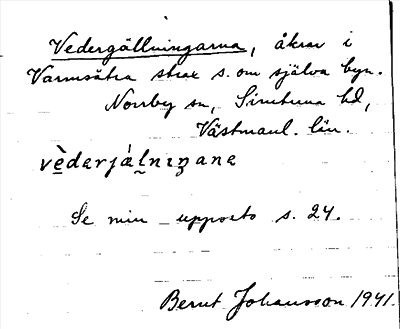 Vedergällningarna, åkrar i
Varmsätra strax s. om själva byn.
Norrby sn, Simtuna hd,
Västmanl. län.
vèderjálniŋane
Se min uppsats s. 24.
Bernt Johansson 1941.